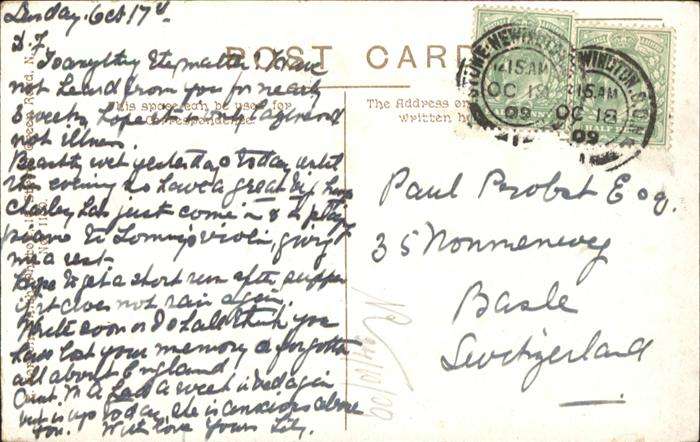 Sunday. Oct 17th
D. F.
Is anything the matter! I have
not heard from you for nearly
3 weeks, hope it is only laziness and
not illness.
Beastly wet yesterday & today until
this evening so have a great big
Charley has just come in & is to play
piano & Tommy violin, giving
me a rest
Hope to get a short run after supper
if it does not rain again.
Write soon or I shall think you
have lost your memory & forgotten
all about England
Aunt M. A. had a week in bed again
but is up today, she is anxious about
you. With love Yours Lily.
POST CARD
This space can be used for
Correspondence.
The Address on
written he
STOKE-NEWINGTON
12.15 AM
OC 18
09
STOKE-NEWINGTON
12.15 AM
OC 18
09
Paul Probst Esq.
35 Nonnenweg
Basle
Switzerland